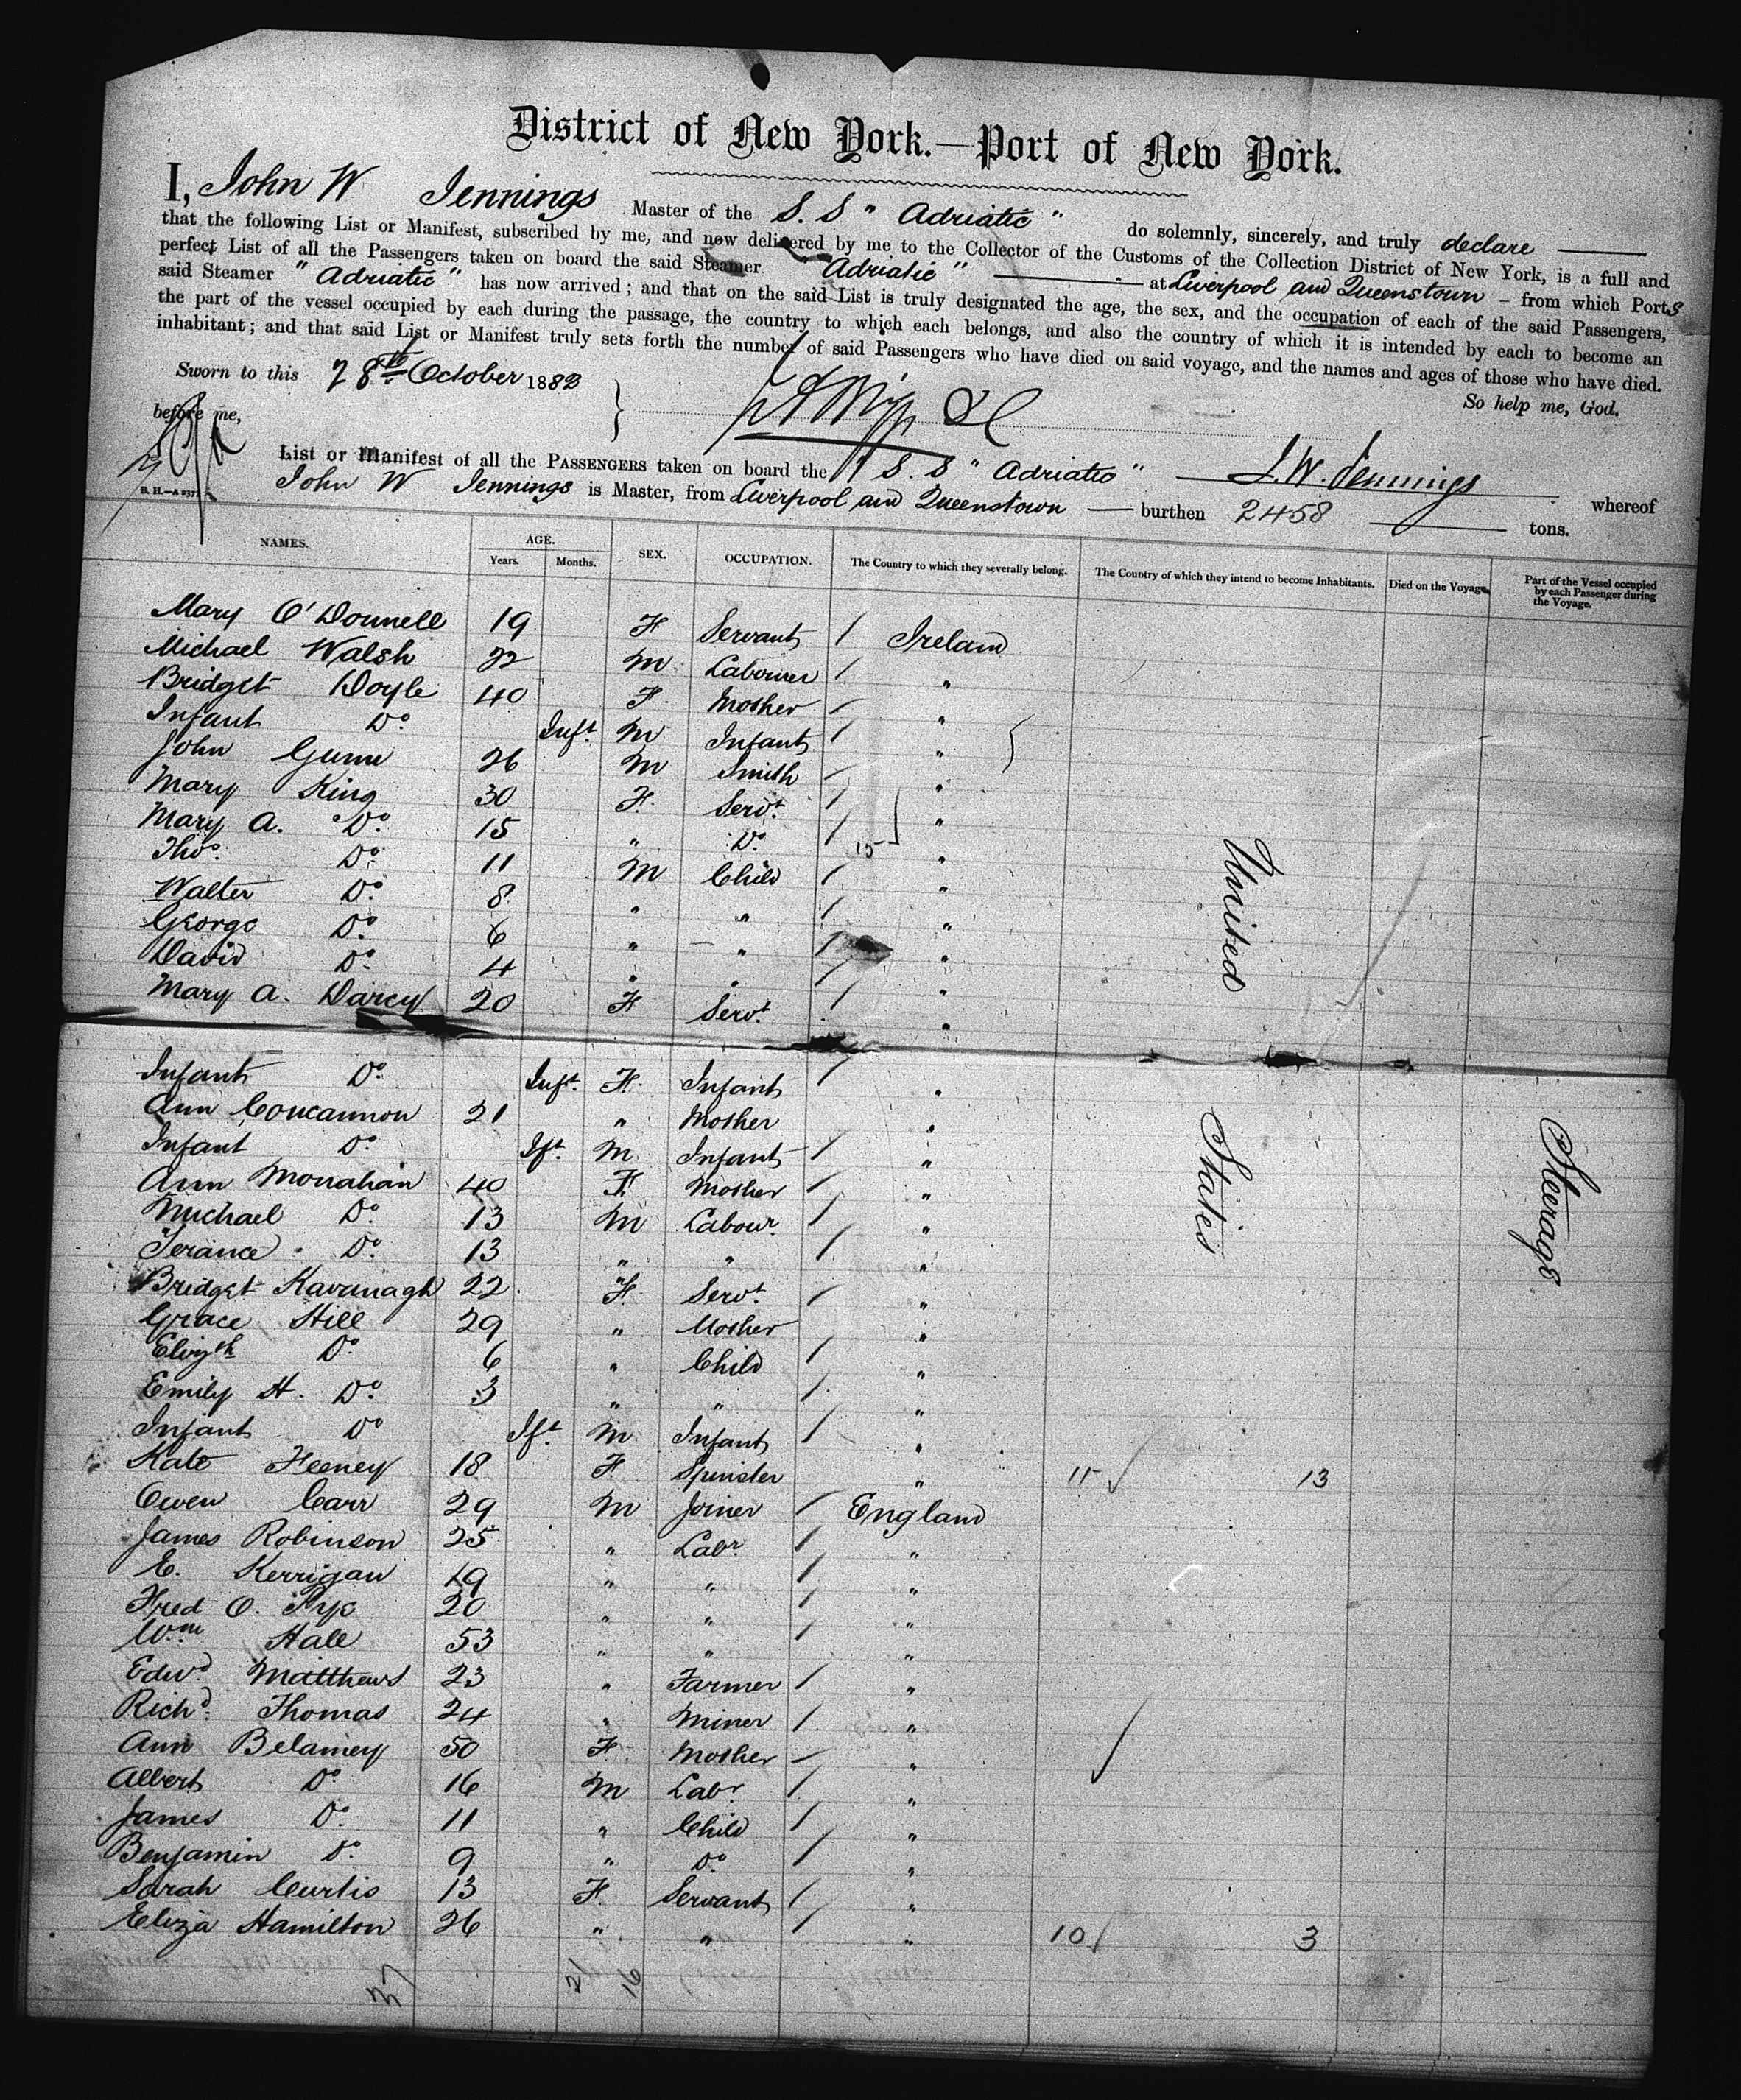 District of New York.—Port of New York.
I, John W Jennings Master of the S. S " Adriatic " do solemnly, sincerely, and truly declare
that the following List or Manifest, subscribed by me, and now delivered by me to the Collector of the Customs of the Collection District of New York, is a full and
perfect List of all the Passengers taken on board the said Steamer " Adriatic " at Liverpool and Queenstown – from which Ports
said Steamer " Adriatic " has now arrived; and that on the said List is truly designated the age, the sex, and the occupation of each of the said Passengers,
the part of the vessel occupied by each during the passage, the country to which each belongs, and also the country of which it is intended by each to become an
inhabitant; and that said List or Manifest truly sets forth the number of said Passengers who have died on said voyage, and the names and ages of those who have died.
Sworn to this 28th October 1882
So help me, God.
before me,
List or Manifest of all the PASSENGERS taken on board the " S. S " Adriatic " J. W. Jennings whereof
B. H.—A 2377
John W Jennings is Master, from Liverpool and Queenstown — burthen 2458 tons.
NAMES. AGE. SEX. OCCUPATION. The Country to which they severally belong. The Country of which they intend to become Inhabitants. Died on the Voyage. Part of the Vessel occupied by each Passenger during the Voyage.
Years. Months.
Mary O'Donnell 19 F Servant / Ireland
Michael Walsh 22 M Labourer / "
Bridget Doyle 40 F. Mother / "
Infant Do Inft. M Infant / "
John Gunn 26 M Smith / "
Mary King 30 F. Servt. / "
Mary A. Do. 15 " Do / 15 "
Thos. Do. 11 M Child / "
Walter Do. 8 " " / "
George Do. 6 " " / "
David Do. 4 " " / "
Mary A. Darcy 20 F Servt. / "
Infant Do. Inft. F. Infant / "
Ann Concannon 21 " Mother "
Infant Do. Ift. M. Infant / "
Ann Monahan 40 F. Mother / "
Michael Do. 13 M Labour. / "
Terance Do. 13 " " / "
Bridget Kavanagh 22. F. Servt. / "
Grace Hill 29 " Mother "
Elizth Do. 6 " Child / "
Emily H. Do. 3 " " / "
Infant Do Ift. M. Infant / "
Kate Feeney 18 F Spinster " 11 13
Owen Carr 29 M Joiner / England
James Robinson 25 " Labr. / "
E. Kerrigan 19 " " / "
Fred O. Pye 20 " " / "
Wm. Hall 53 " " / "
Edwd. Matthews 23 " Farmer / "
Richd. Thomas 24 " Miner / "
Ann Belamey 50 F. Mother / "
Albert Do. 16 M Labr. / "
James Do. 11 " Child / "
Benjamin Do. 9 " Do. / "
Sarah Curtis 13 F. Servant / "
Eliza Hamilton 26 " " / " 10 3
United
States
Steerage
37 21 16